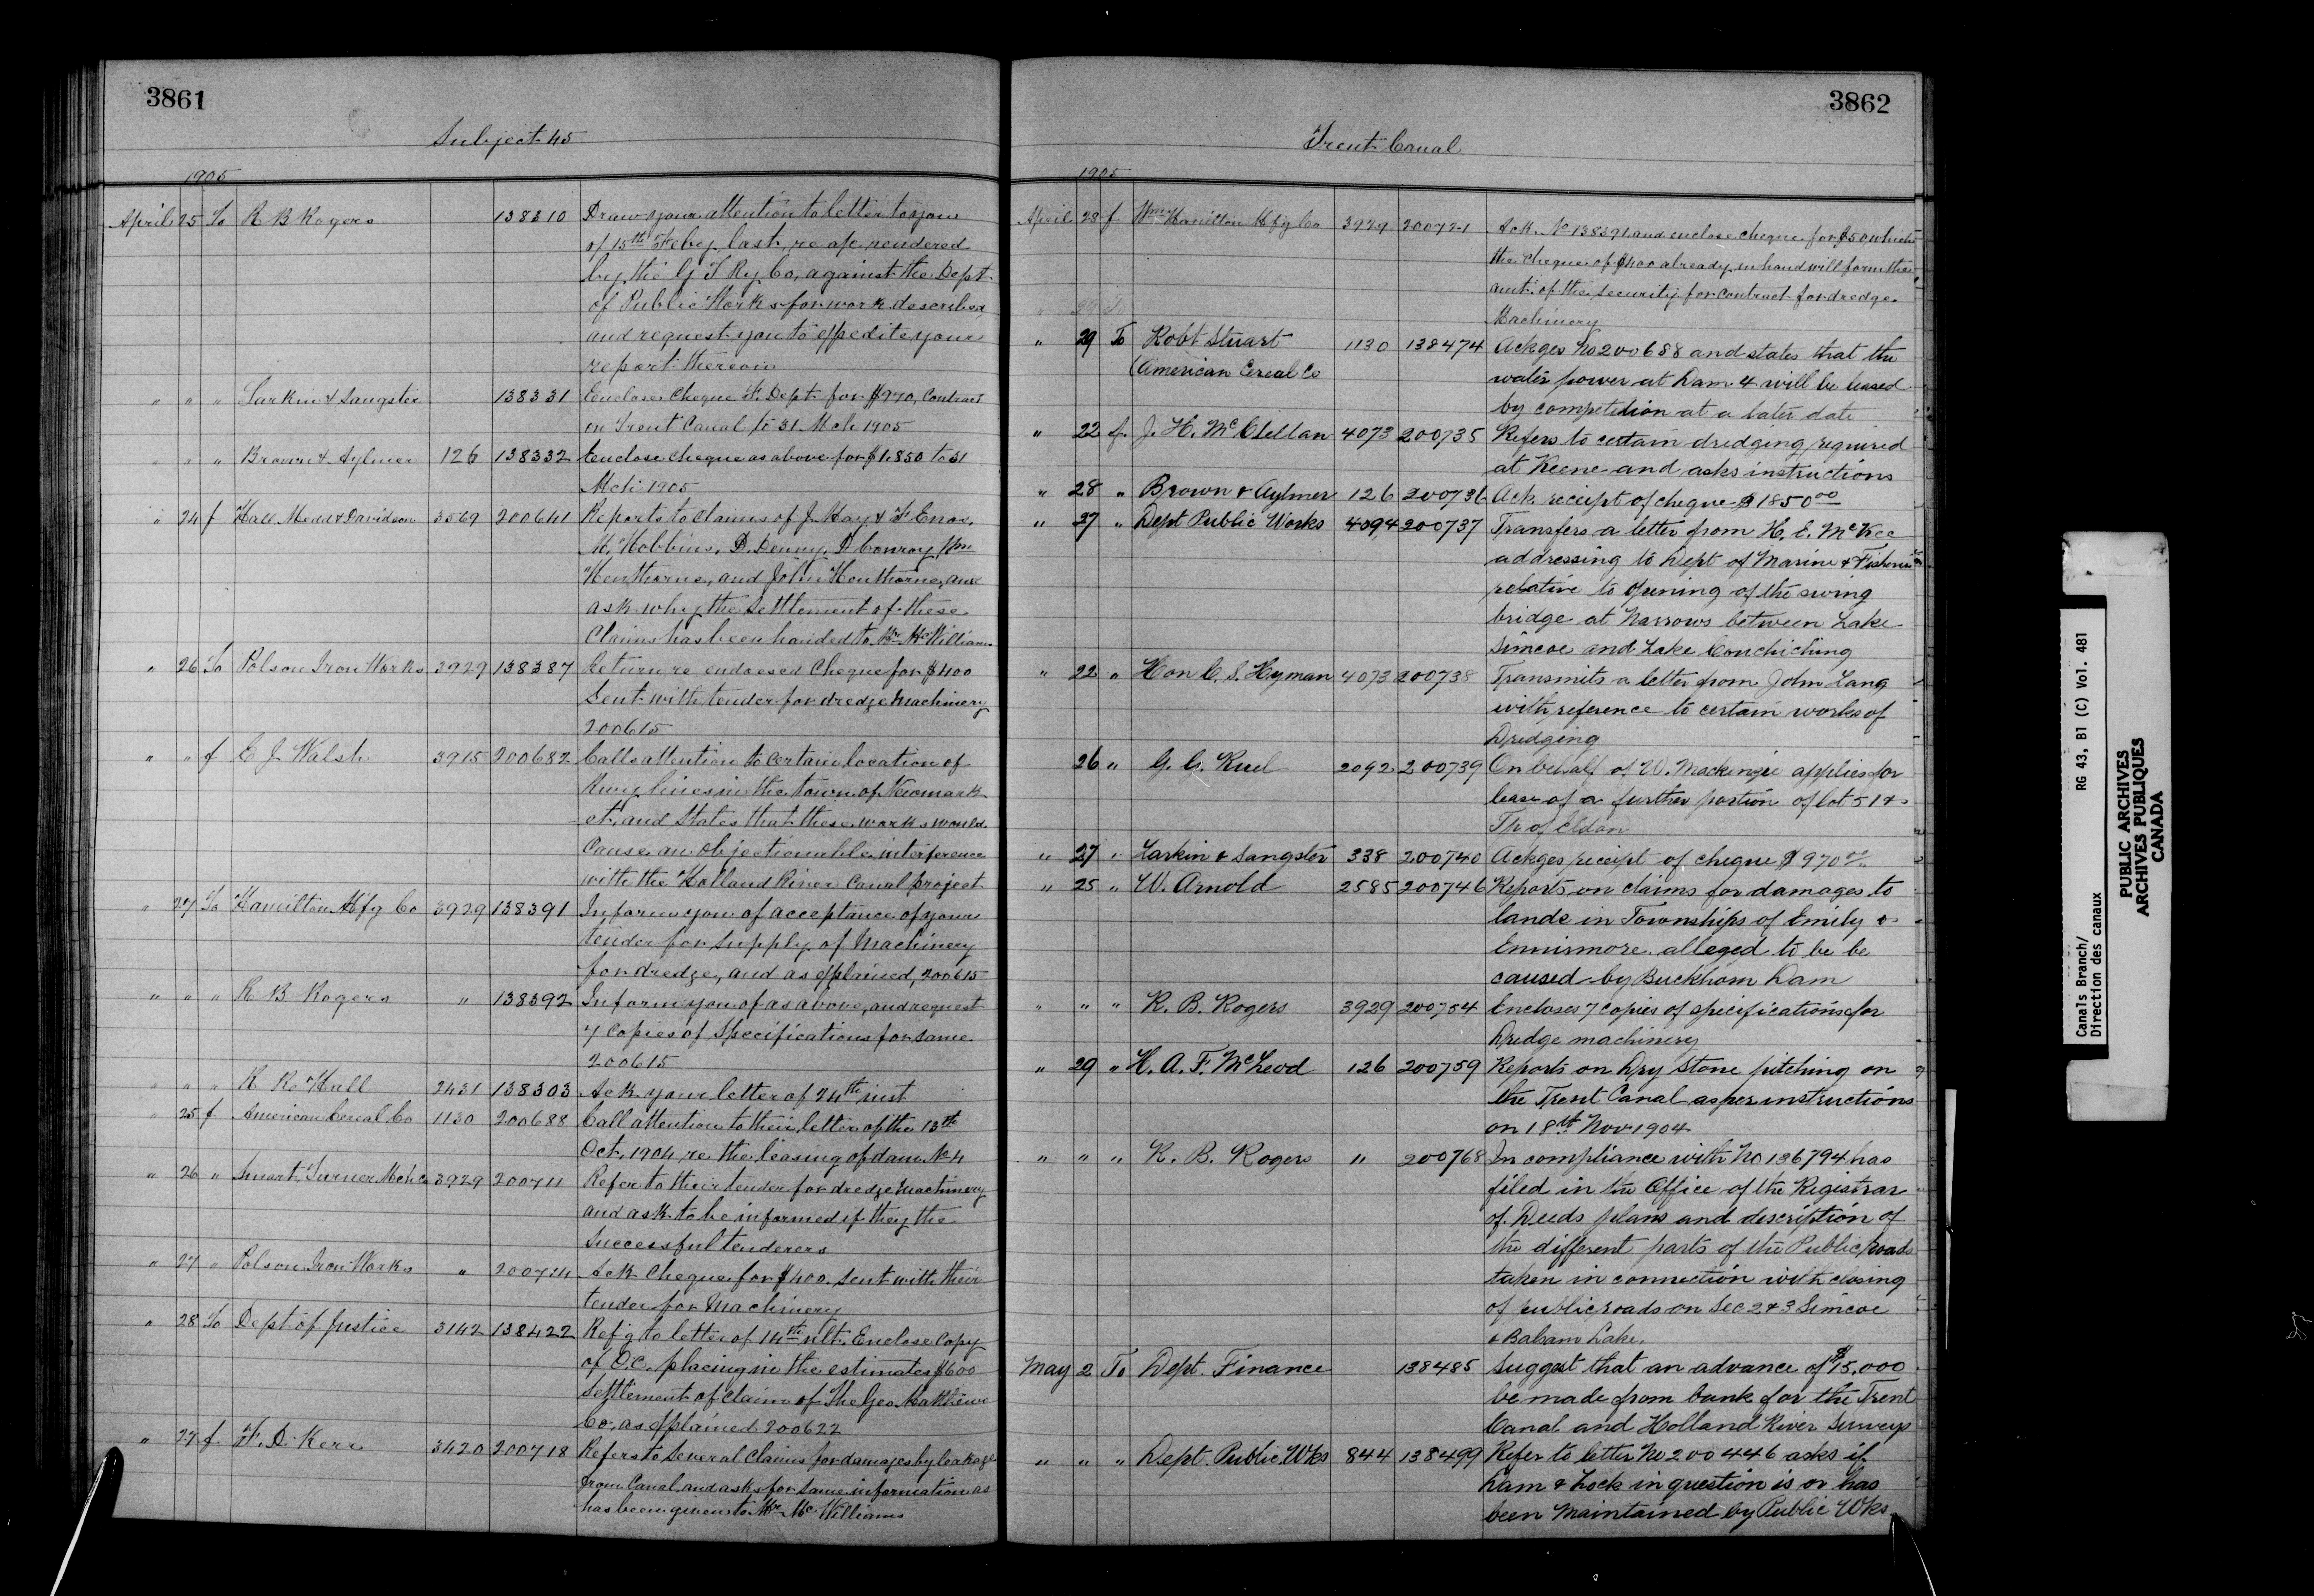 3861
Subject 45
1905
April 25 To R B Rogers 138310 Draw your attention to letter to you
of 15th Feby last, re a/c rendered
by the G T Ry Co, against the Dept
of Public Works for work described
and request you to expedite your
report thereon
" " " Larkin & Sangster 138331 Enclose Cheque F. Dept for $970, Contract
on Trent Canal to 31 Mch 1905
" " " Brown & Aylmer 126 138332 Enclose cheque as above for $1.850 to 31
Mch 1905
" 24 f Hall Medd & Davidson 3569 200641 Reports to claims of J. Hay & F Enox.
M. Hobbins, D. Denny, D Conroy Wm
Henthorne, and John Henthorne, and
ask why the settlement of these
Claims has been handed to Mr McWilliams
" 26 To Polson Iron Works 3929 138387 Return re endorsed Cheque for $400
Sent with tender for dredge Machinery
200615
" " f E J Walsh 3915 200682 Calls attention to certain location of
Rwy lines in the Town of Newmark
et, and States that these works would
Cause an objectionable interference
with the Holland River Canal project
" 27 To Hamilton Mfg Co 3929 138391 Inform you of acceptance of your
tender for supply of Machinery
for dredge, and as explained, 200615
" " " R B Rogers " 138392 Inform you of as above, and request
7 Copies of Specifications for same
200615
" " " R R Hall 2431 138303 Ack your letter of 24th inst
" 25 f American Cereal Co 1130 200688 Call attention to their letter of the 13th
Oct, 1904, re the leasing of dam No 4
" 26 " Smart Turner Mch Co 3929 200711 Refer to their tender for dredge Machinery
and ask to be informed if they the
Successful tenderers
" 27 " Polson Iron Works " 200714 Ack Cheque for $400. sent with their
tender for Machinery
" 28 To Dept of Justice 3142 138422 Refg to letter of 14th ult. Enclose Copy
of O.C. placing in the estimates $600
Settlement of claim of The Geo. Matthews
Co. as explained 200622
" 27 f. F. D. Kerr 3420 200718 Refers to Several Claims for damages by leakage
from Canal and asks for same information as
has been given to Mr. McWilliams
3862
Trent Canal
1905
April 28 f. Wm Hamilton Mfg Co 3929 200721 Ack. No 138391 and enclose cheque for $50 which
the cheque of $400 already in hand will form the
amt. of the security for contract for dredge
Machinery
" 29 To Robt Stuart 1130 138474 Ackges No 200688 and states that the
(American Cereal Co water power at Dam 4 will be leased
by competition at a later date
" 22 f. J. H. McClellan 4073 200735 Refers to certain dredging required
at Keene and asks instructions
" 28 " Brown & Aylmer 126 200736 Ack receipt of cheque $1850 00
" 27 " Dept Public Works 4094 200737 Transfers a letter from H. E. McKee
addressing to Dept of Marine & Fisheries
relative to opening of the swing
bridge at Narrows between Lake
Simcoe and Lake Couchiching
" 22 " Hon C. S. Hyman 4073 200738 Transmits a letter from John Lang
with reference to certain works of
Dredging
26 " G. C. Ruel 2092 200739 On behalf of W. Mackenzie applies for
lease of a further portion of lot 51 &
Tp of Eldon
" 27 " Larkin & Sangster 338 200740 Ackges receipt of cheque $970
" 25 " W. Arnold 2585 200746 Reports on claims for damages to
lands in Townships of Emily &
Ennismore. alleged to be be
caused by Buckhorn Dam
" " " R. B. Rogers 3929 200754 Encloses 7 copies of specifications for
Dredge machinery
" 29 " H. A. F. McLeod 126 200759 Reports on Dry Stone pitching on
the Trent Canal as per instructions
on 18th Nov 1904
" " " R. B. Rogers " 200768 In compliance with No 136794 has
filed in the Office of the Registrar
of Deeds plans and description of
the different parts of the Public roads
taken in connection with closing
of public roads on Sec 2 & 3 Simcoe
& Balsam Lake.
May 2 To Dept. Finance 138485 Suggest that an advance of $75.000
be made from bank for the Trent
Canal and Holland River Surveys
" " " Dept. Public Wks 844 138499 Refer to letter No 200446 asks if
Dam & Lock in question is or has
been maintained by Public Wks
Canals Branch/ RG 43, B1 (C) Vol. 481
Direction des canaux
PUBLIC ARCHIVES
ARCHIVES PUBLIQUES
CANADA